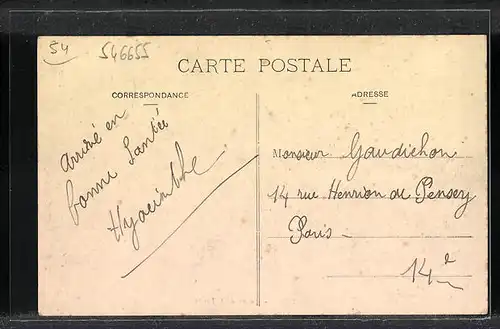 54
546655
CARTE POSTALE
CORRESPONDANCE
ADRESSE
Arrivé en
bonne Santée
Hyacinthe
Monsieur Gaudichon
14 rue Henrion de Pensey
Paris –
14e